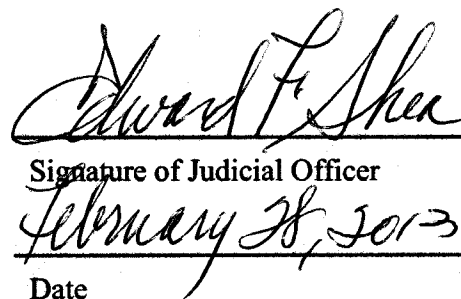 Edward F. Shea
Signature of Judicial Officer
February 28, 2013
Date